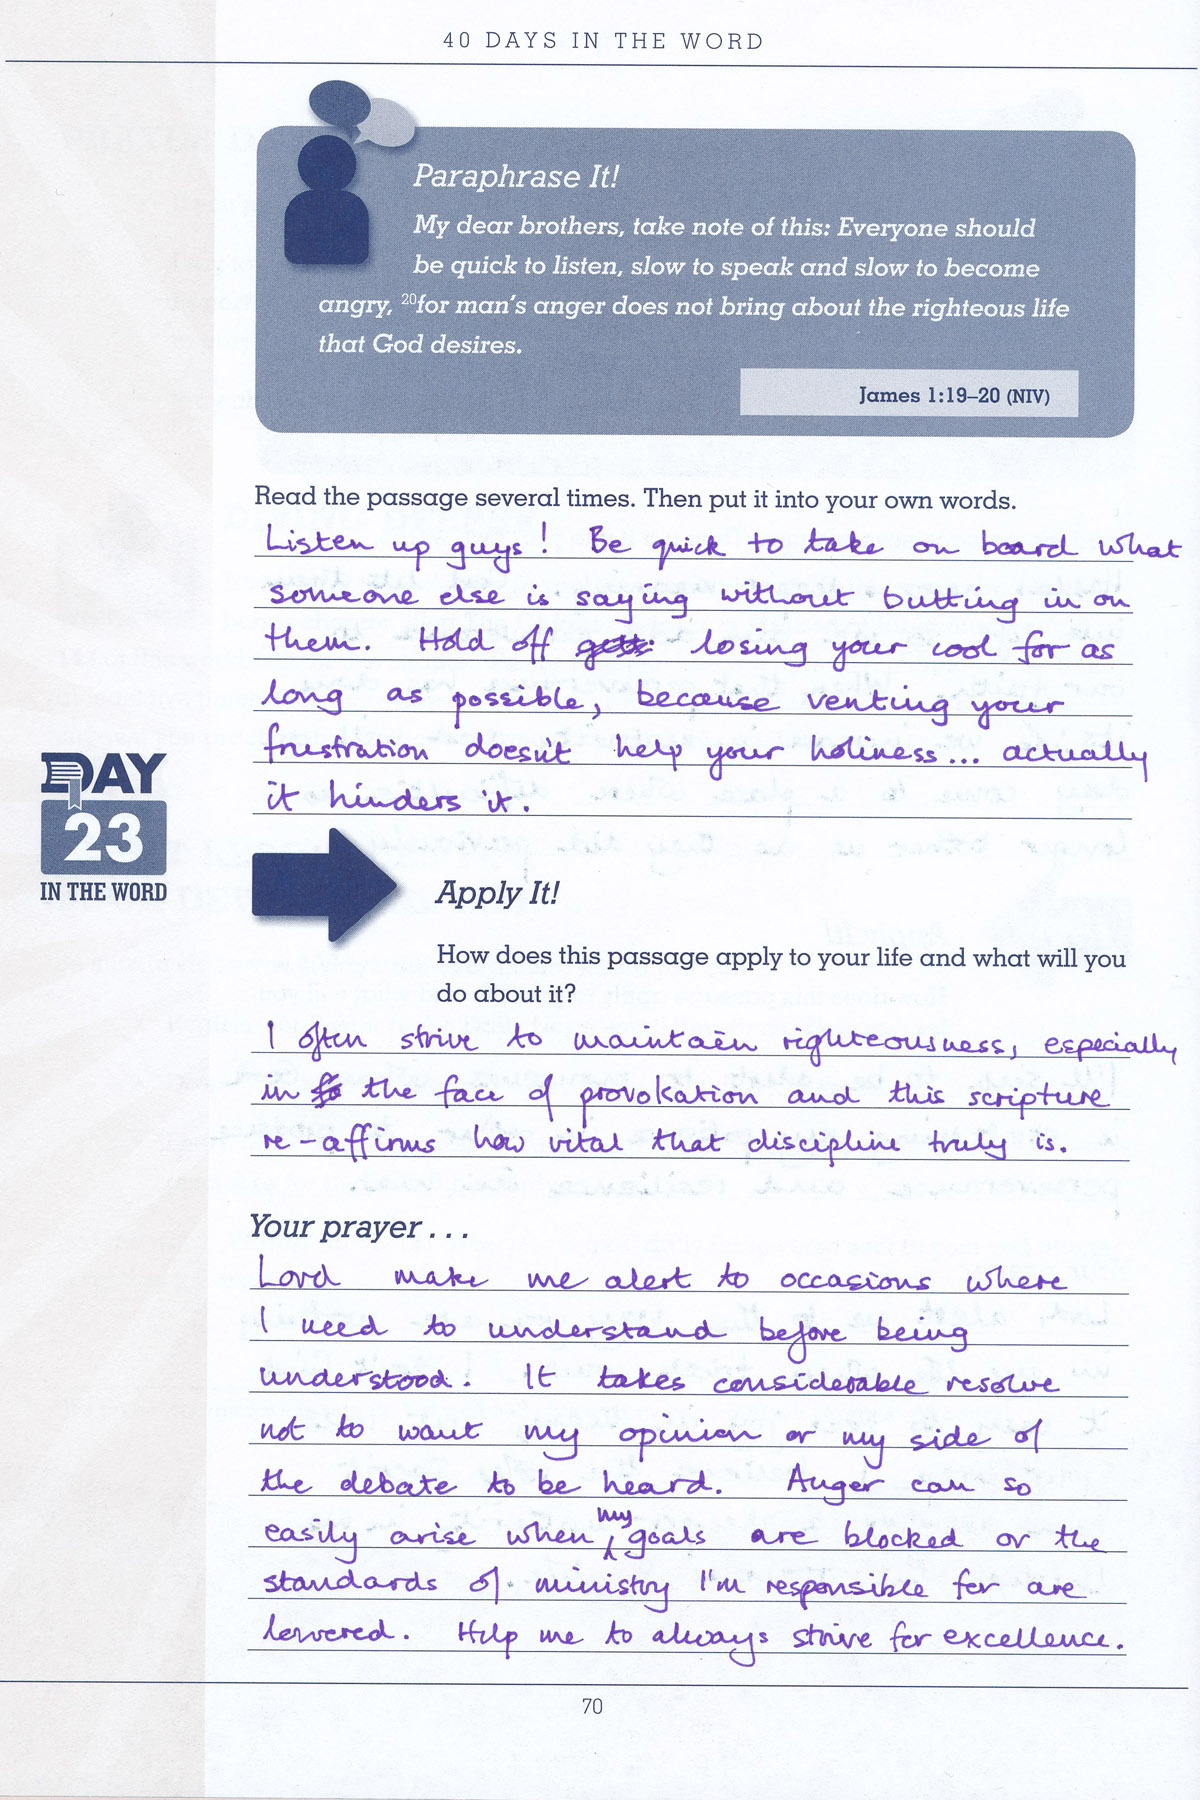 40 DAYS IN THE WORD
Paraphrase It!
My dear brothers, take note of this: Everyone should
be quick to listen, slow to speak and slow to become
angry, 20for man's anger does not bring about the righteous life
that God desires.
James 1:19–20 (NIV)
Read the passage several times. Then put it into your own words.
Listen up guys! Be quick to take on board what
someone else is saying without butting in on
them. Hold off losing your cool for as
long as possible, because venting your
frustration doesn't help your holiness... actually
it hinders it.
DAY
23
IN THE WORD
Apply It!
How does this passage apply to your life and what will you
do about it?
I often strive to maintain righteousness, especially
in the face of provokation and this scripture
re-affirms how vital that discipline truly is.
Your prayer . . .
Lord make me alert to occasions where
I need to understand before being
understood. It takes considerable resolve
not to want my opinion or my side of
the debate to be heard. Anger can so
easily arise when my goals are blocked or the
standards of ministry I'm responsible for are
lowered. Help me to always strive for excellence.
70